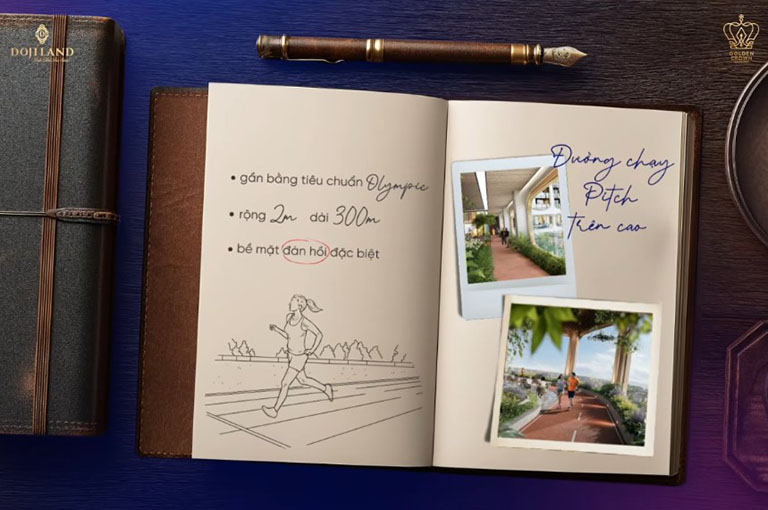 DOJILAND
GOLDEN
CROWN
• gần bằng tiêu chuẩn Olympic
• rộng 2m dài 300m
• bề mặt đàn hồi đặc biệt
Đường chạy
Pitch
trên cao